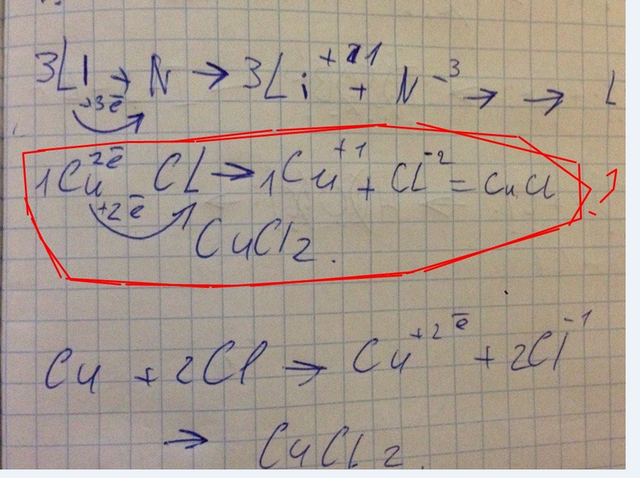 3Li + N → 3Li +1 + N -3 → → L
+3ē
1Cu 2ē CL → 1Cu +1 + Cl -2 = CuCl
+2ē
CuCl2.
Cu + 2Cl → Cu +2ē + 2Cl -1
→ CuCl2.